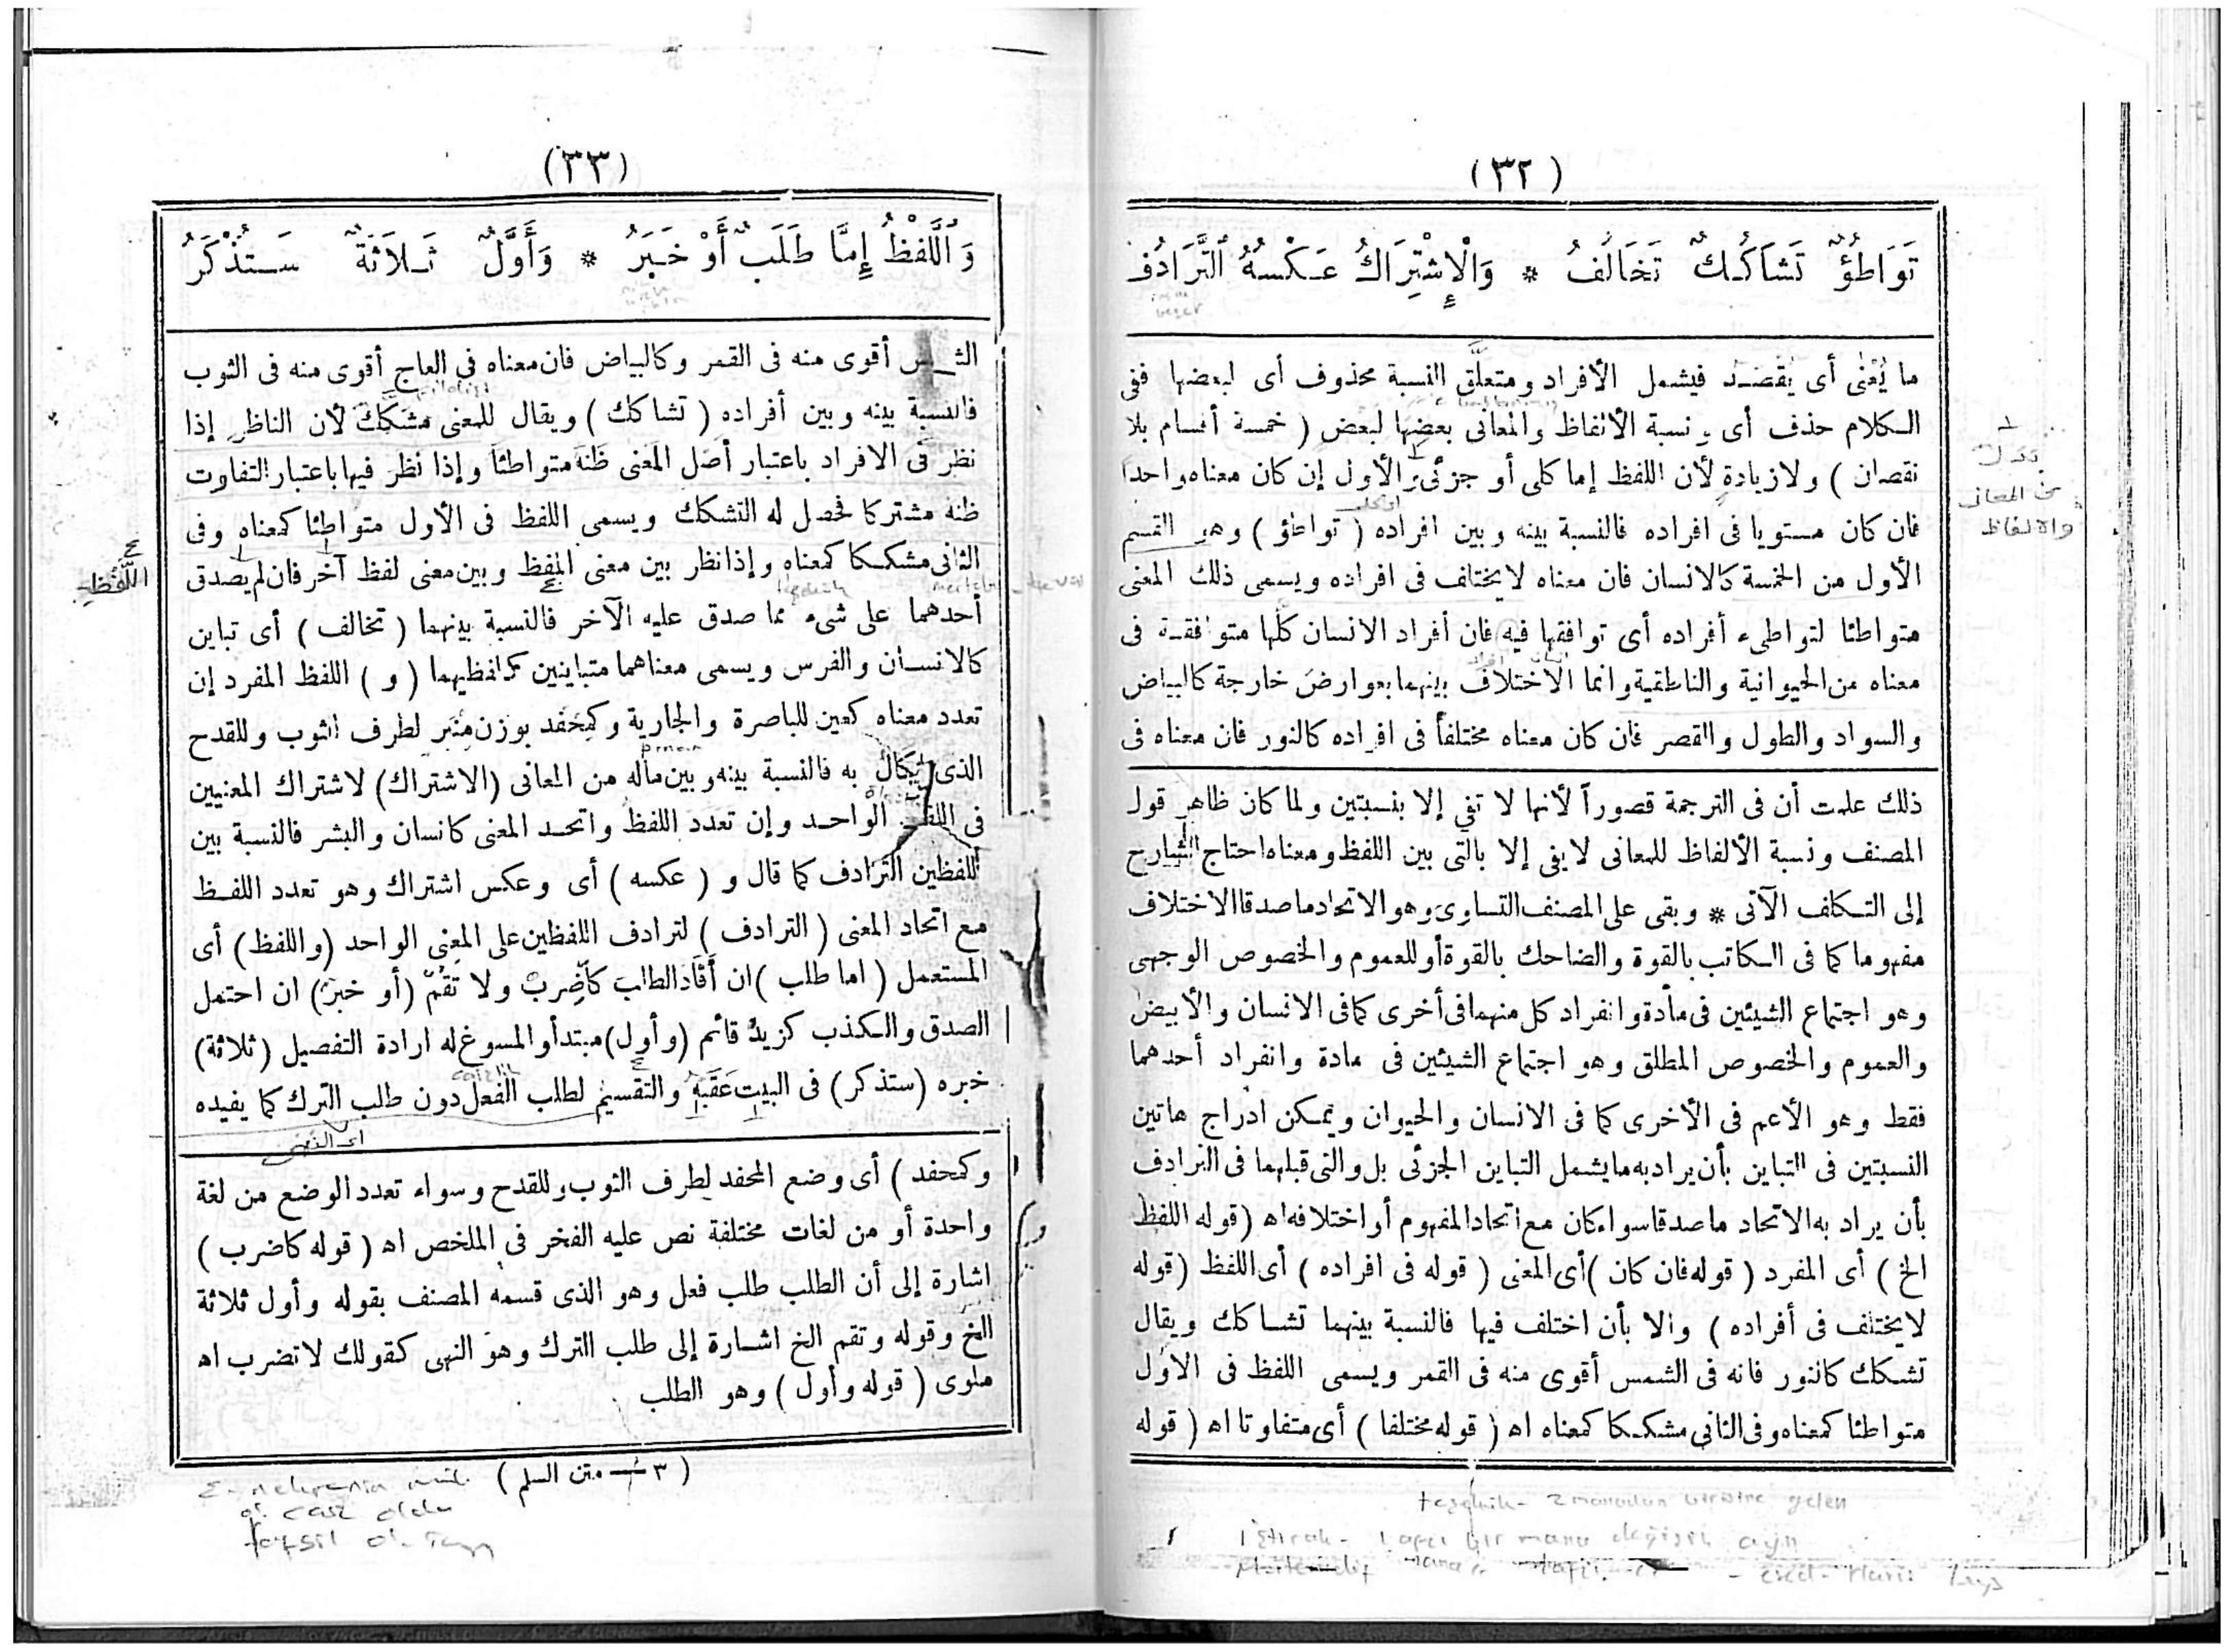 (٣٢)
تَوَاطُؤٌ تَشَاكُكٌ تَخَالُفُ * وَالْإِشْتِرَاكُ عَكْسُهُ ٱلتَّرَادُفُ
ما يُعْنٰى أى يقصد فيشمل الأفراد ومتعلَّق النسبة محذوف أى لبعضها ففى
الكلام حذف أى ونسبة الألفاظ والمعانى بعضها لبعض ( خمسة أقسام بلا
نقصان ) ولازيادة لأن اللفظ إما كلى أو جزئى والأول إن كان معناه واحدا
فان كان مستويا فى افراده فالنسبة بينه وبين افراده ( تواطؤ ) وهو القسم
الأول من الخمسة كالانسان فان معناه لايختلف فى افراده ويسمى ذلك المعنى
متواطئا لتواطىء أفراده أى توافقها فيه فان أفراد الانسان كلها متوافقة فى
معناه من الحيوانية والناطقية وانما الاختلاف بينهما بعوارض خارجة كالبياض
والسواد والطول والقصر فان كان معناه مختلفاً فى افراده كالنور فان معناه فى
ذلك علمت أن فى الترجمة قصوراً لأنها لا تفي إلا بنسبتين ولما كان ظاهر قول
المصنف ونسبة الألفاظ للمعانى لايفى إلا بالتى بين اللفظ ومعناه احتاج الشارح
إلى التكلف الآتى * وبقى على المصنف التساوى وهو الاتحاد ماصدقا الاختلاف
مفهوما كما فى الكاتب بالقوة والضاحك بالقوة أو للعموم والخصوص الوجهى
وهو اجتماع الشيئين فى مادة وانفراد كل منهما فى أخرى كما فى الانسان والأبيض
والعموم والخصوص المطلق وهو اجتماع الشيئين فى مادة وانفراد أحدهما
فقط وهو الأعم فى الأخرى كما فى الانسان والحيوان ويمكن ادراج هاتين
النسبتين فى التباين بأن يراد به مايشمل التباين الجزئى بل والتى قبلهما فى الترادف
بأن يراد به الاتحاد ماصدقا سواء كان مع اتحاد المفهوم أو اختلافه اه (قوله اللفظ
الخ ) أى المفرد ( قوله فان كان ) أى المعنى ( قوله فى افراده ) أى اللفظ (قوله
لايختلف فى أفراده ) والا بأن اختلف فيها فالنسبة بينهما تشاكك ويقال
تشكك كالنور فانه فى الشمس أقوى منه فى القمر ويسمى اللفظ فى الاول
متواطئا كمعناه وفى الثانى مشككا كمعناه اه ( قوله مختلفا ) أى متفاوتا اه ( قوله
(٣٣)
وَٱللَّفْظُ إِمَّا طَلَبٌ أَوْ خَبَرُ * وَأَوَّلٌ ثَلَاثَةٌ سَتُذْكَرُ
أقوى منه فى القمر وكالبياض فان معناه فى العاج أقوى منه فى الثوب
فالنسبة بينه وبين أفراده ( تشاكك ) ويقال للمعنى مشَكِّك لأن الناظر إذا
نظر فى الافراد باعتبار أصل المعنى ظنه متواطئا وإذا نظر فيها باعتبار التفاوت
ظنه مشتركا فحصل له التشكك ويسمى اللفظ فى الأول متواطئا كمعناه وفى
الثانى مشككا كمعناه وإذا نظر بين معنى اللفظ وبين معنى لفظ آخر فان لم يصدق
اللَّفْظِ
أحدهما على شىء مما صدق عليه الآخر فالنسبة بينهما ( تخالف ) أى تباين
كالانسان والفرس ويسمى معناهما متباينين كلفظيهما ( و ) اللفظ المفرد إن
تعدد معناه كعين للباصرة والجارية وكمِحْفَد بوزن مِنْبر لطرف الثوب وللقدح
الذى يُكَال به فالنسبة بينه وبين ماله من المعانى (الاشتراك) لاشتراك المعنيين
فى اللفظ الواحد وإن تعدد اللفظ واتحد المعنى كانسان والبشر فالنسبة بين
اللفظين الترادف كما قال و ( عكسه ) أى وعكس اشتراك وهو تعدد اللفظ
مع اتحاد المعنى ( الترادف ) لترادف اللفظين على المعنى الواحد (واللفظ) أى
المستعمل ( اما طلب ) ان أفاد الطلب كاضرِبْ ولا تَقُمْ (أو خبر) ان احتمل
الصدق والكذب كزيدٌ قائم (وأول) مبتدأ والمسوغ له ارادة التفصيل (ثلاثة)
خبره (ستذكر) فى البيت عَقِبَه والتقسيم لطلب الفعل دون طلب الترك كما يفيده
وكمحفد ) أى وضع المحفد لطرف الثوب وللقدح وسواء تعدد الوضع من لغة
واحدة أو من لغات مختلفة نص عليه الفخر فى الملخص اه ( قوله كاضرب )
اشارة إلى أن الطلب طلب فعل وهو الذى قسمه المصنف بقوله وأول ثلاثة
الخ وقوله وتقم الخ اشارة إلى طلب الترك وهو النهى كقولك لاتضرب اه
ملوى ( قوله وأول ) وهو الطلب
( ٣ — متن السلم )